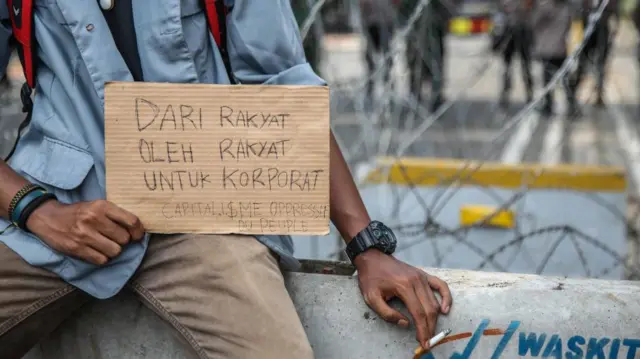 DARI RAKYAT
OLEH RAKYAT
UNTUK KORPORAT
CAPITALI$ME OPPRESS
PEOPLE
WASKIT